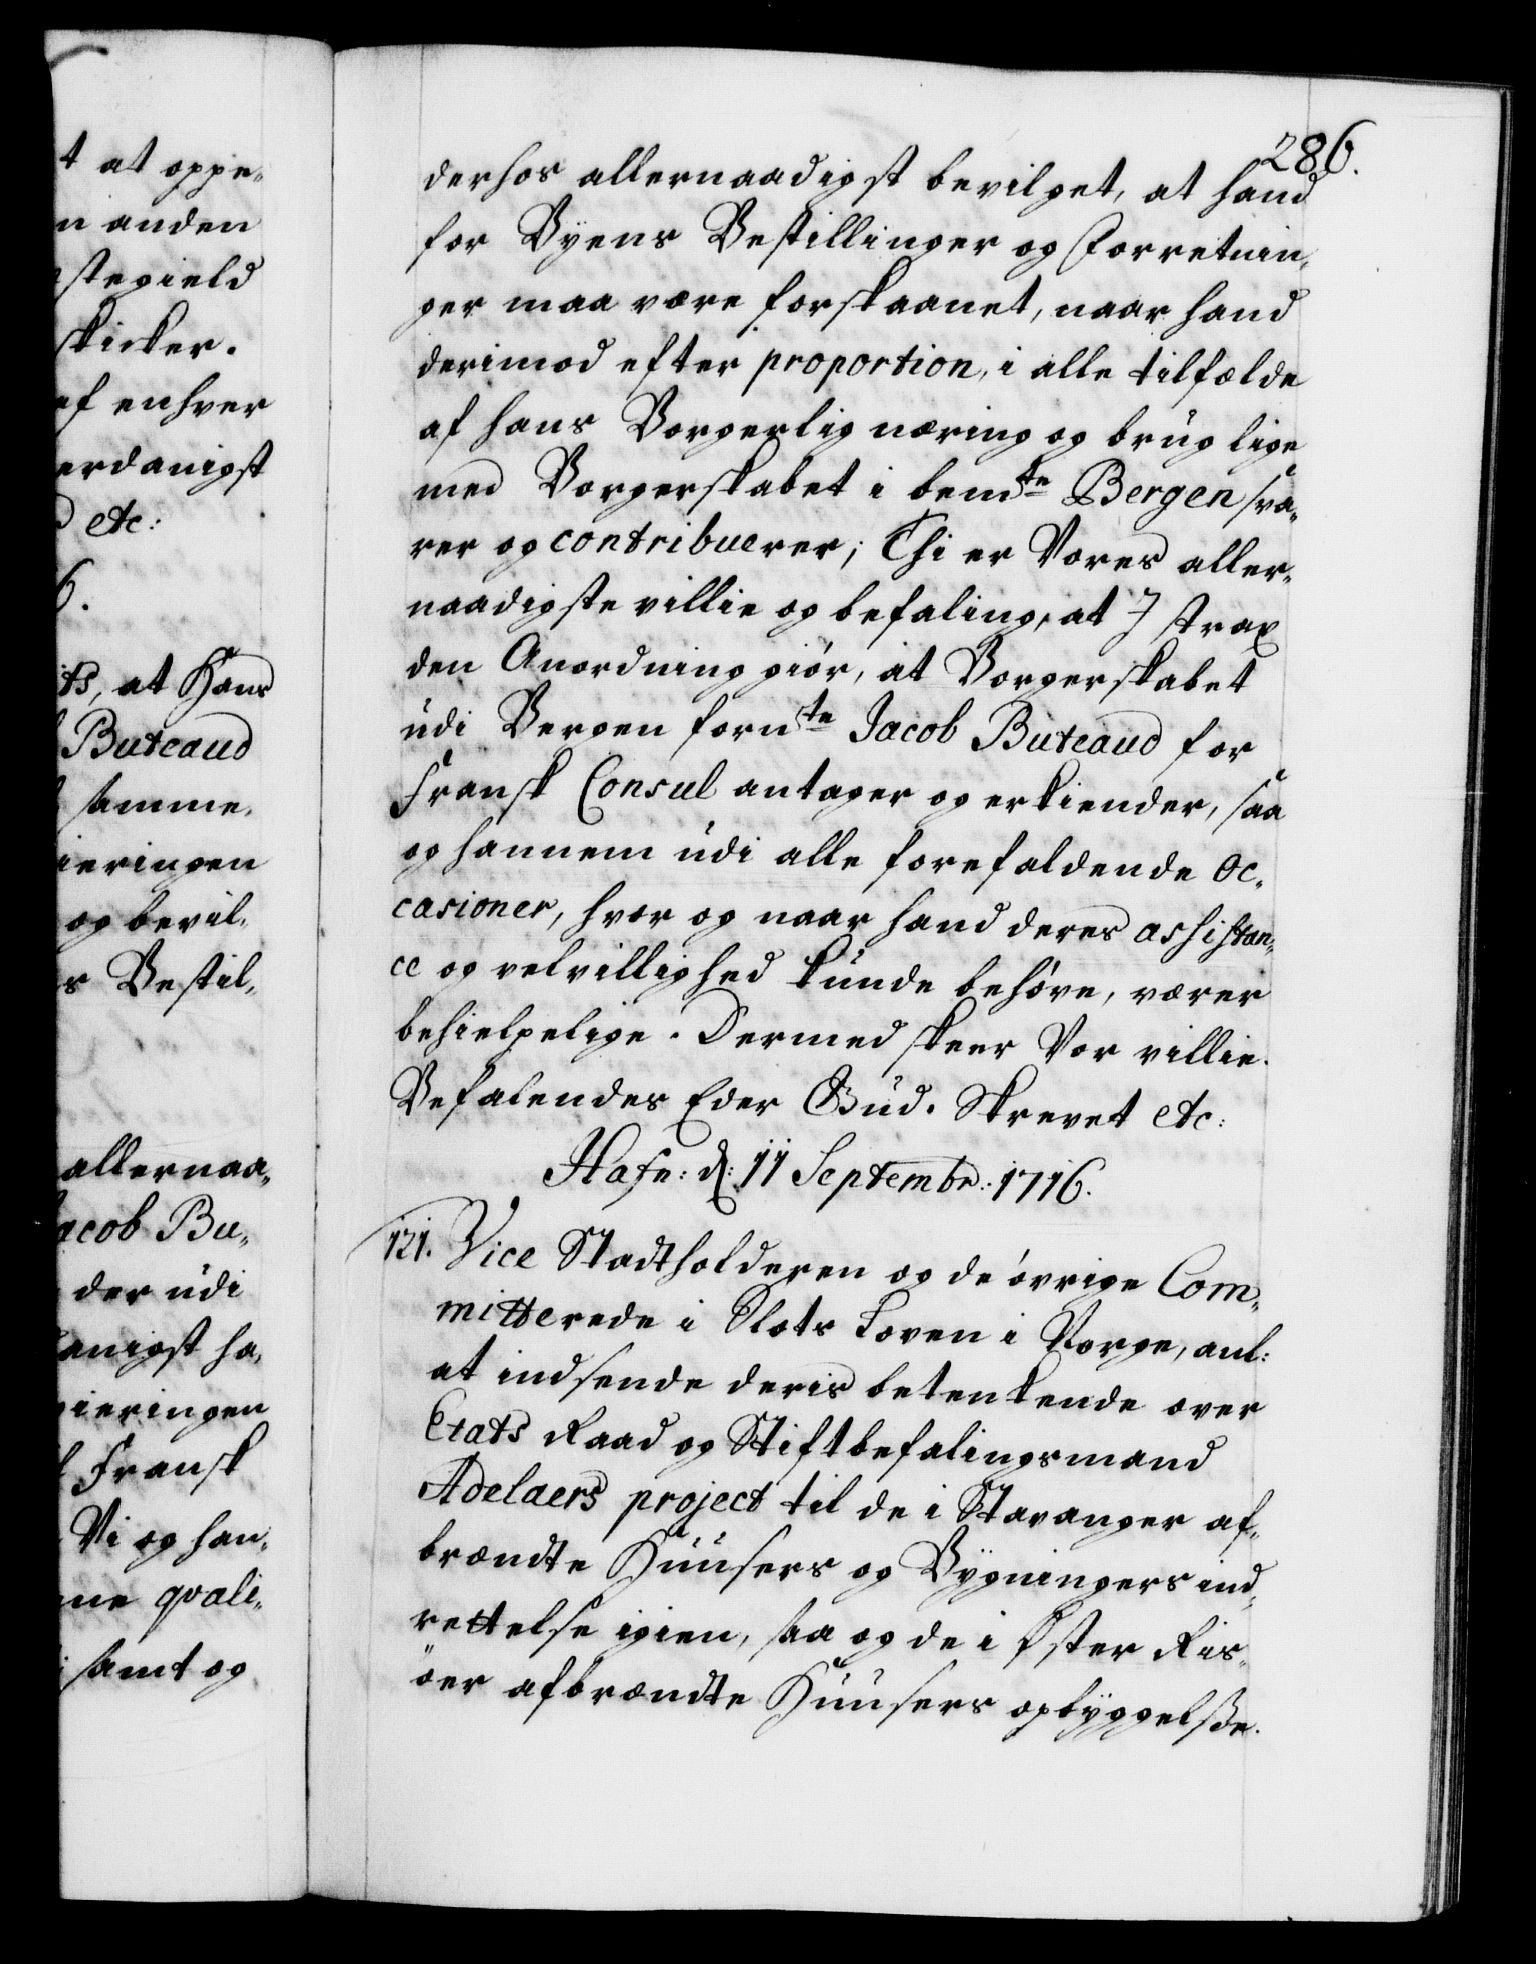 t at oppe„
n anden
stegield
skicker.
ef enhver
erdanigst
etc:
6.
ts, at Hans
Buteaud
samme,
ieringen
og bevil„
s Bestil„
allernaa„
acob Bu„
der udi
anigst ha„
gieringen
Fransk
Vi og han„
ne qvali„
samt og
286.
derhos allernaadigst bevilget, at hand
for Byens Bestillinger og Forretnin„
ger maa være forskaanet, naar hand
derimod efter proportion, i alle tilfælde
af hans Borgerlig næring og brug lige
med Borgerskabet i bemte Bergen sva„
rer og contribuerer; Thi er Vores aller„
naadigste villie og befaling, at I strax
den Anordning giör, at Borgerskabet
udi Bergen fornte Jacob Buteaud for
Fransk Consul antager og erkiender, saa
og hannem udi alle forefaldende oc„
casioner, hvor og naar hand deres assistan„
ce og velvillighed kunde behöve, værer
behielpelige. Dermed skeer Vor villie.
Befalendes Eder Gud. Skrevet etc:
Hafn: d: 11 Septembr: 1716.
121. Vice Stadtholderen og de övrige Com„
mitterede i Slots Loven i Norge, anl:
at indsende deris betenkende over
Etats Raad og Stiftbefalingsmand
Adelaers project til de i Stavanger af„
brændte Huusers og Bygningers ind„
rettelse igien, saa og de i Öster Riis„
öer afbrændte Huusers opbyggelsse.